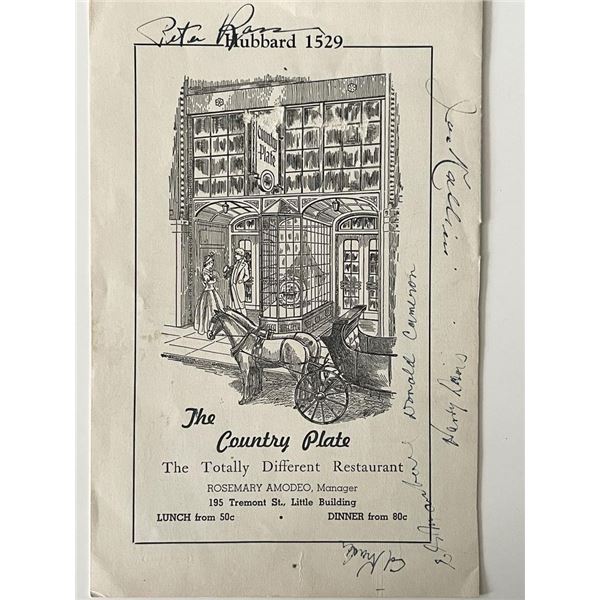 Peter Ross
Hubbard 1529
Country
Plate
The
Country Plate
The Totally Different Restaurant
ROSEMARY AMODEO, Manager
195 Tremont St., Little Building
LUNCH from 50c • DINNER from 80c
Donald Cameron